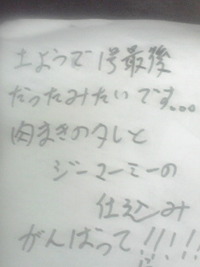 土ようで1号最後
だったみたいです。。。
肉まきのタレと
ジーマーミーの
仕込み
がんばって!!!!!